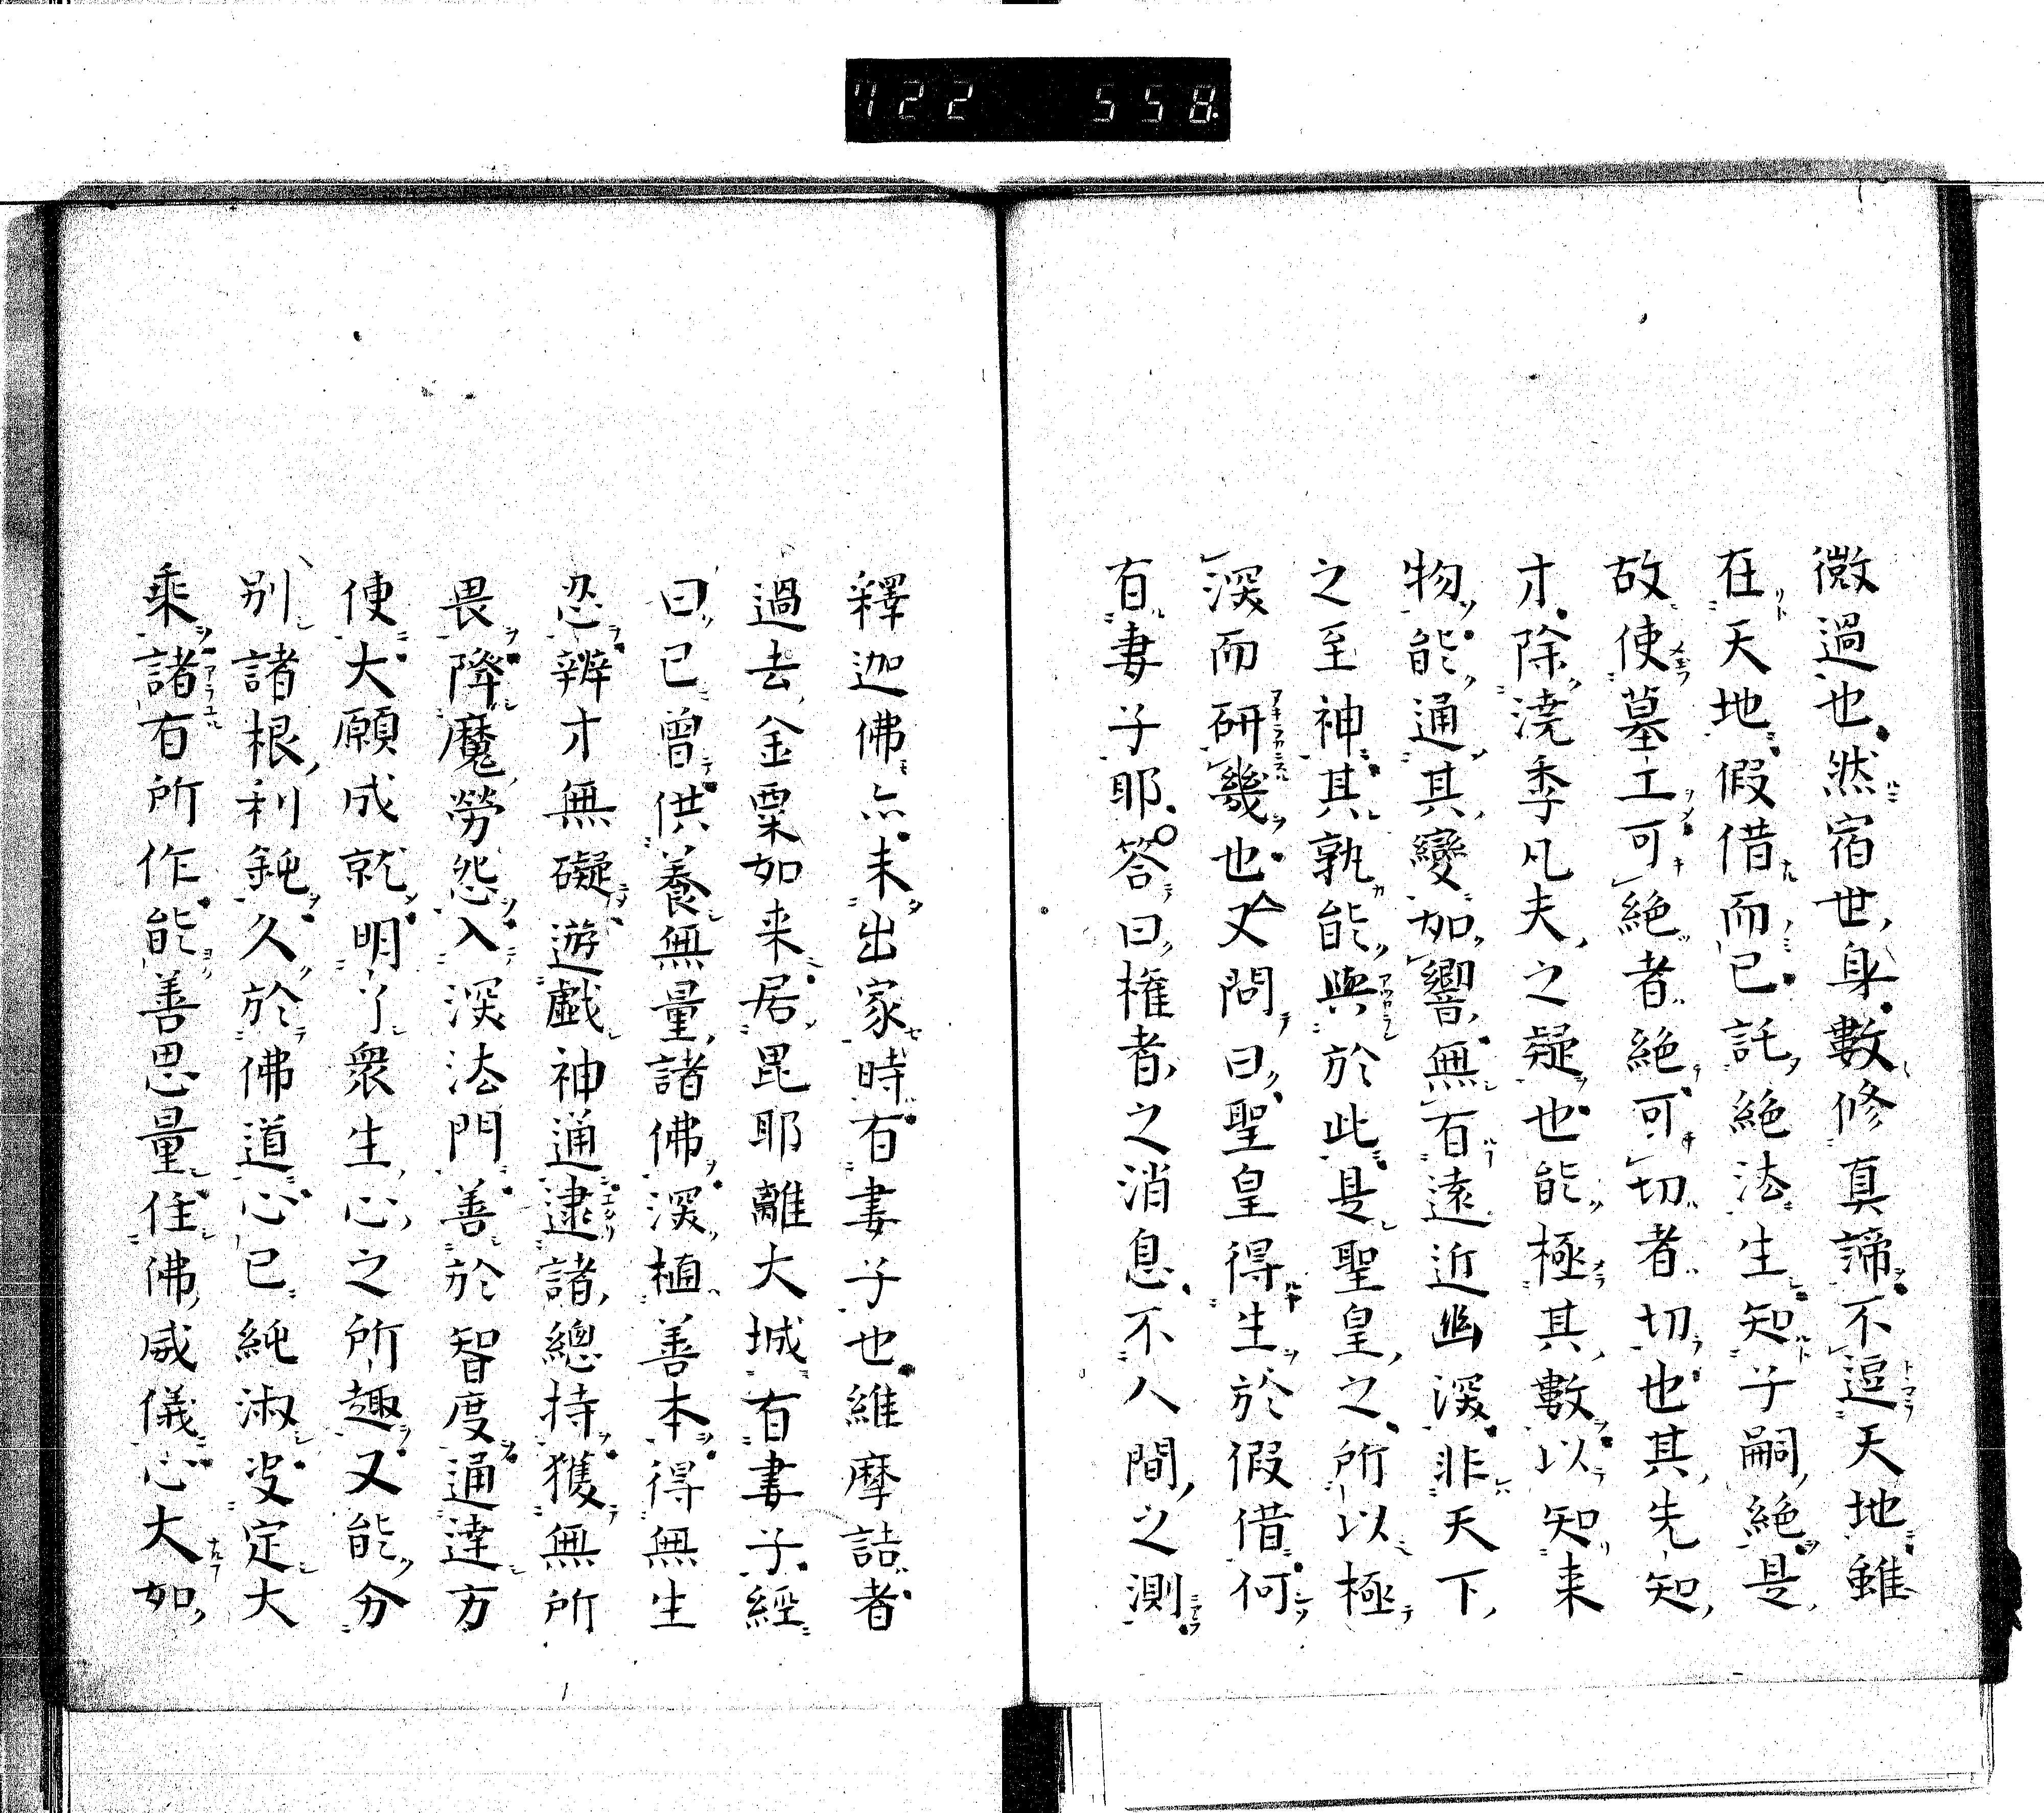 722 558
微過也然宿世身數修真諦不逗天地雖
在天地假借而已託絶法生知子嗣絶是
故使墓工可絶者絶可切者切也其先知
才除澆季凡夫之疑也能極其數以知来
物能通其變如響無有遠近幽深非天下
之至神其孰能與於此是聖皇之所以極
深而研幾也又問曰聖皇得生於假借何
有妻子耶答曰権者之消息不人間之測
釋迦佛亦未出家時有妻子也維摩詰者
過去金粟如来居毘耶離大城有妻子經
曰已曾供養無量諸佛深植善本得無生
忍辨才無礙遊戯神通逮諸總持獲無所
畏降魔勞怨入深法門善於智度通達方
使大願成就明了衆生心之所趣又能分
別諸根利鈍久於佛道心已純淑决定大
乘諸有所作能善思量住佛威儀心大如